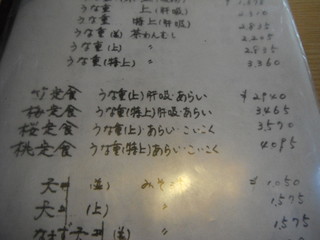 うな重 上 (肝吸)
うな重 特上 (肝吸) 2835
うな重 (並) 茶わんむし 2205
うな重 (上) 〃 2835
うな重 (特上) 〃 3,360
竹定食 うな重(上)肝吸・あらい ¥2940
梅定食 うな重(特上)肝吸・あらい 3,465
桜定食 うな重(上)あらい・こいこく 3,570
桃定食 うな重(特上)あらい・こいこく 4,095
天重 (並) みそ ¥1,050
天重 (上) 〃 1,575
なまず天重 (並) 〃 1,575